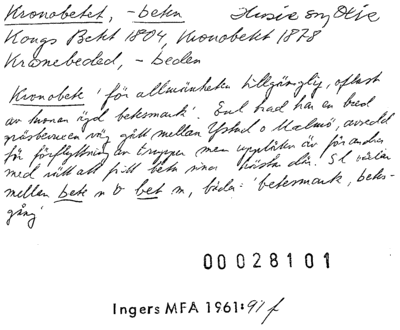 Kronobetet, -beten
Kongs Bekt 1804, Kronobekt 1878
Kronebeded, - beden
Kronobete 'för allmänheten tillgänglig, oftast
av kronan ägd betesmark'. Enl had har en bred
gräsbevuxen väg gått mellan Ystad o Malmö, avsedd
för förflyttning av trupper men upplåten äv för andra
med rätt att fritt beta sina hästa där. Sl växlar
mellan bete n o bet m, båda: 'betesmark, betes-
gång'
00028101
Ingers MFA 1961:91 f